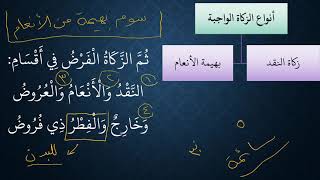 أنواع الزكاة الواجبة
زكاة النقد
بهيمة الأنعام
سوم بهيمة من الأنعام
ثُمَّ الزَّكَاةُ الْفَرْضُ فِي أَقْسَامِ:
النَّقْدُ وَالْأَنْعَامُ وَالْعُرُوضُ
١ ٢ ٣
٤
وَخَارِجٌ وَالْفِطْرُ ذِي فُرُوضُ
للبدن
٥
سائمة